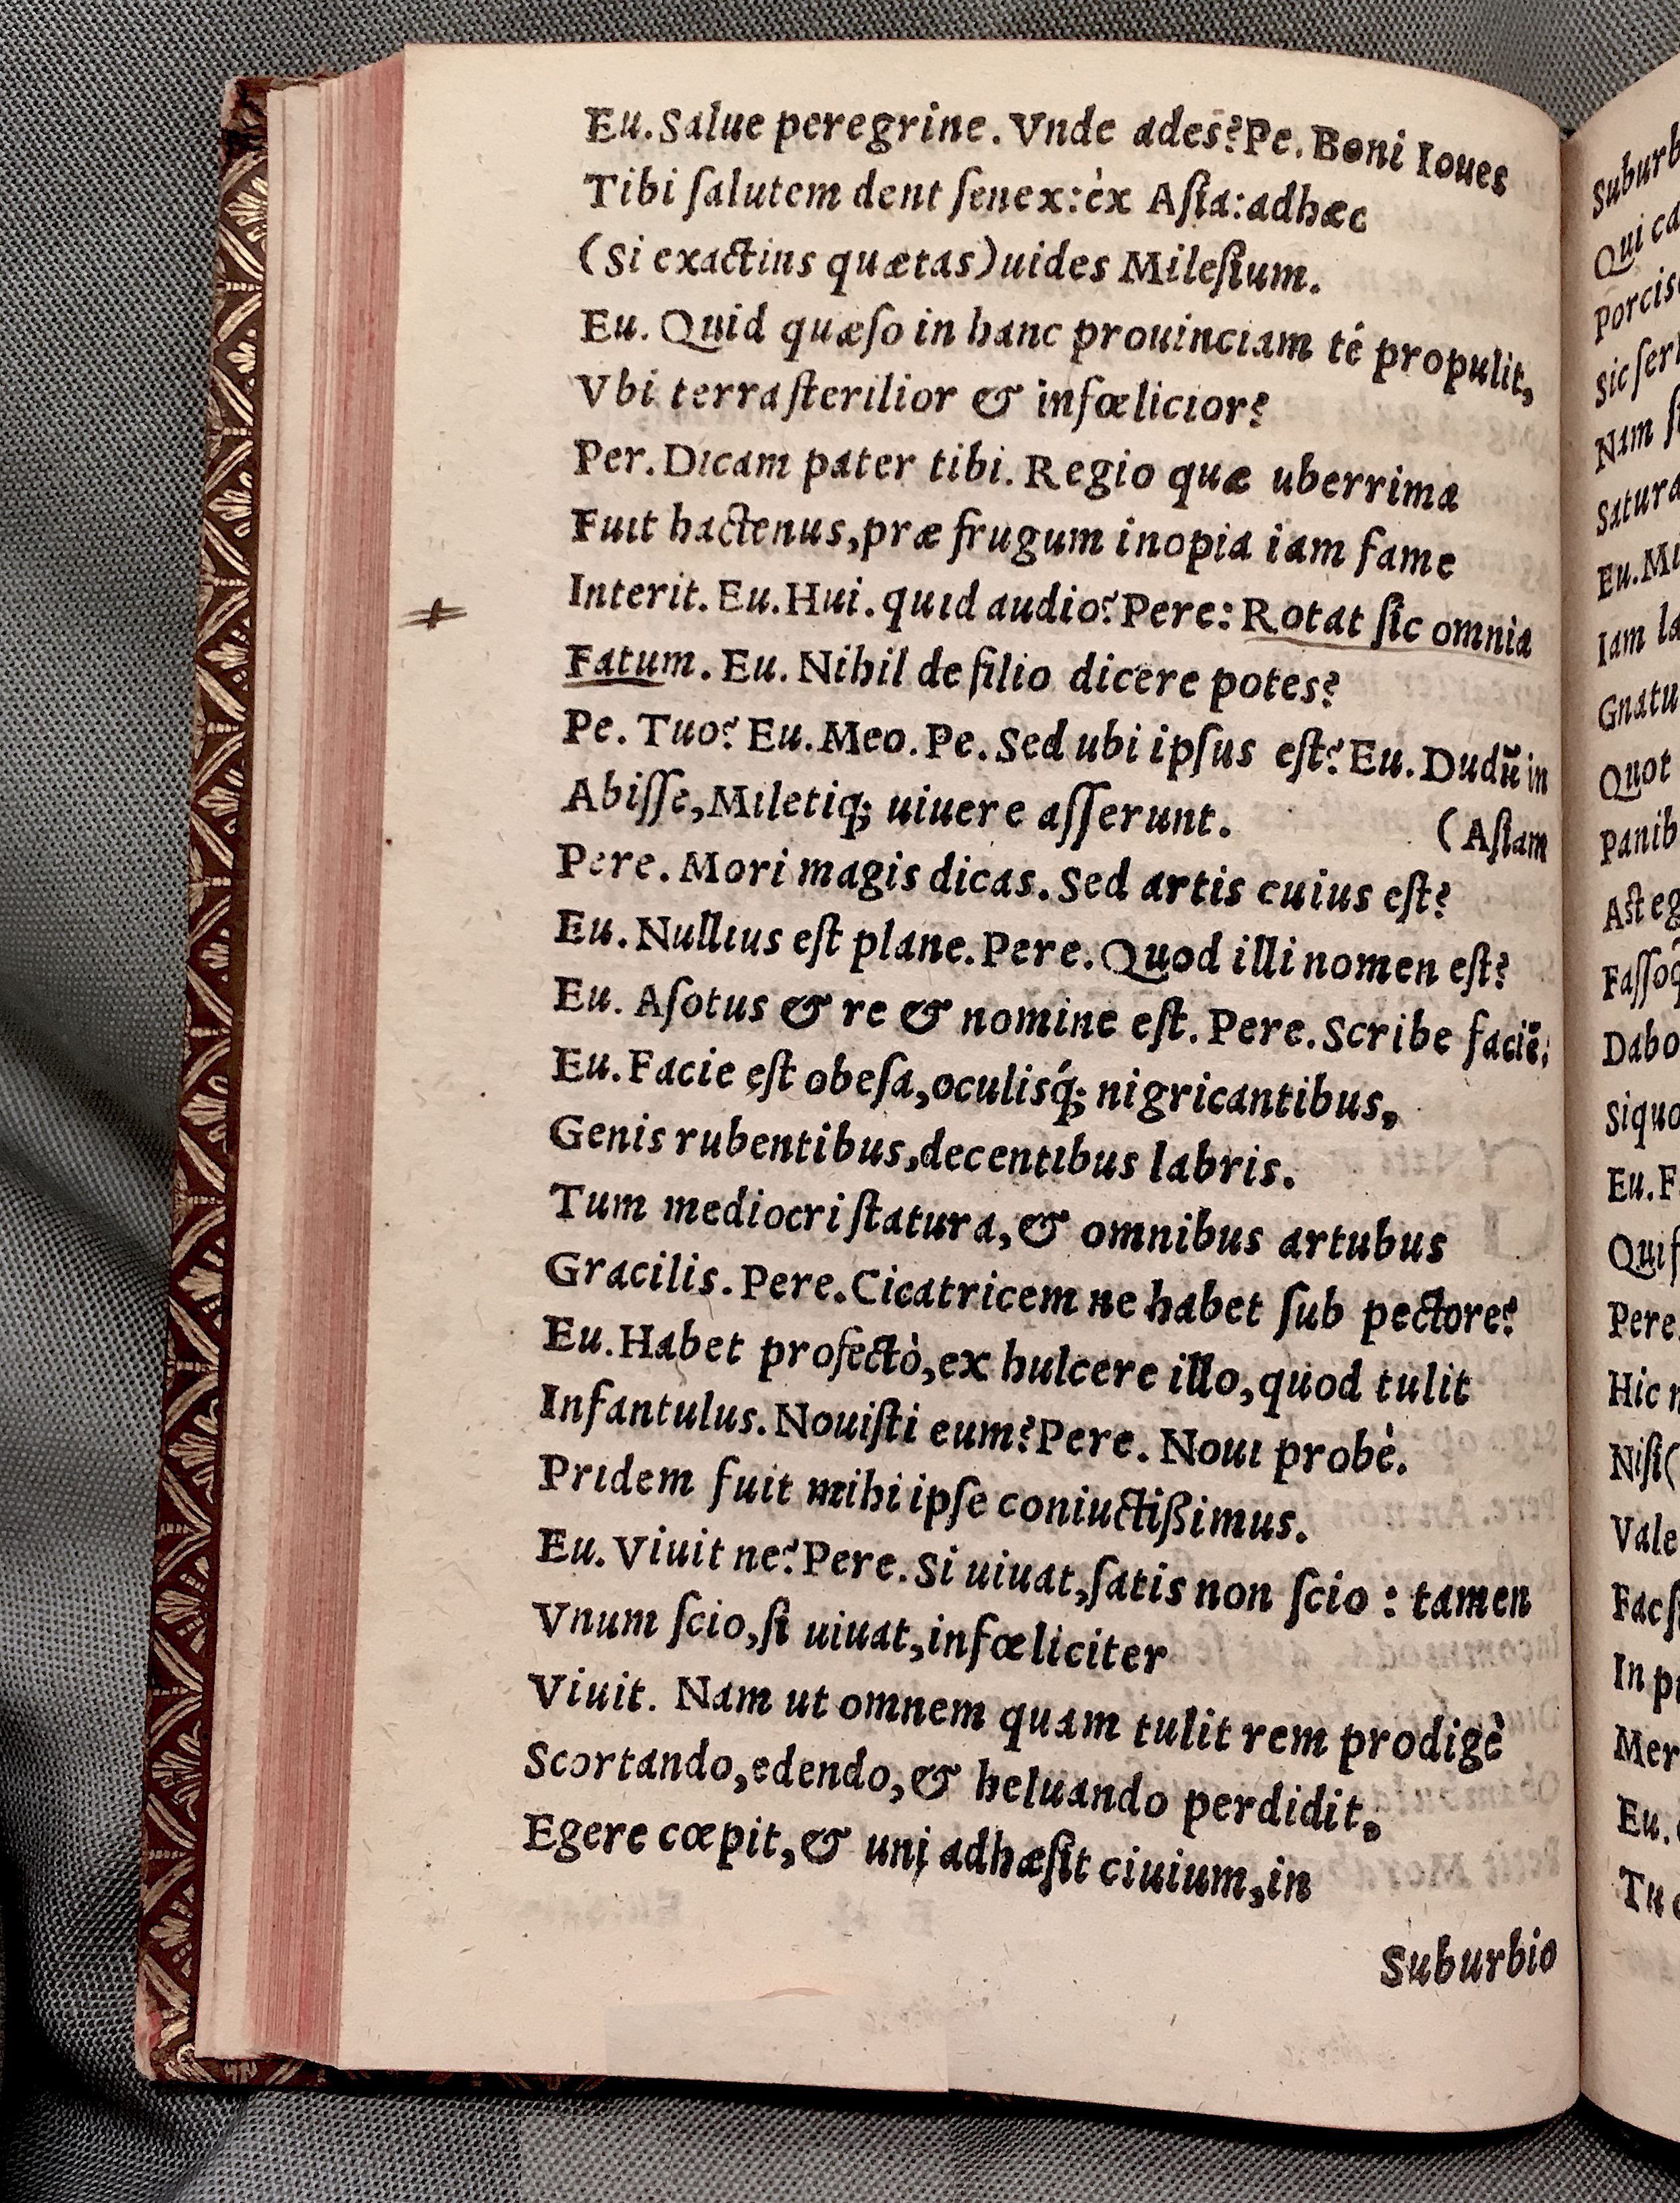 Eu. Salue peregrine. Vnde ades? Pe. Boni Ioues
Tibi ſalutem dent ſenex: èx Aſia: adhæc
(Si exactius quætas) uides Mileſium.
Eu. Quid quæſo in hanc prouinciam té propulit,
Vbi terra ſterilior & infœlicior?
Per. Dicam pater tibi. Regio quæ uberrima
Fuit hactenus, præ frugum inopia iam fame
Interit. Eu. Hui. quid audio? Pere: Rotat ſic omnia
Fatum. Eu. Nihil de filio dicere potes?
Pe. Tuo? Eu. Meo. Pe. Sed ubi ipſus eſt? Eu. Dudū in
Abiſſe, Miletiq; uiuere aſſerunt. (Aſiam
Pere. Mori magis dicas. Sed artis cuius eſt?
Eu. Nullius eſt plane. Pere. Quod illi nomen eſt?
Eu. Aſotus & re & nomine eſt. Pere. Scribe faciē.
Eu. Facie eſt obeſa, oculisq́; nigricantibus,
Genis rubentibus, decentibus labris.
Tum mediocri ſtatura, & omnibus artubus
Gracilis. Pere. Cicatricem ne habet ſub pectore?
Eu. Habet profectò, ex hulcere illo, quod tulit
Infantulus. Nouiſti eum? Pere. Noui probè.
Pridem fuit mihi ipſe coniuctißimus.
Eu. Viuit ne? Pere. Si uiuat, ſatis non ſcio : tamen
Vnum ſcio, ſi uiuat, infœliciter
Viuit. Nam ut omnem quam tulit rem prodigè
Scortando, edendo, & heluando perdidit.
Egere cœpit, & uni adhæſit ciuium, in
Suburbio
Suburb
Qui ca
Porcis
Sic ſer
Nam ſ
Satura
Eu. Mi
Iam la
Gnatu
Quot
Panib
Aſt eg
Faſſoq
Dabo
Siquo
Eu. F
Qui ſ
Pere
Hic
Niſi (
Vale
Fac ſ
In p
Mer
Eu.
Tu